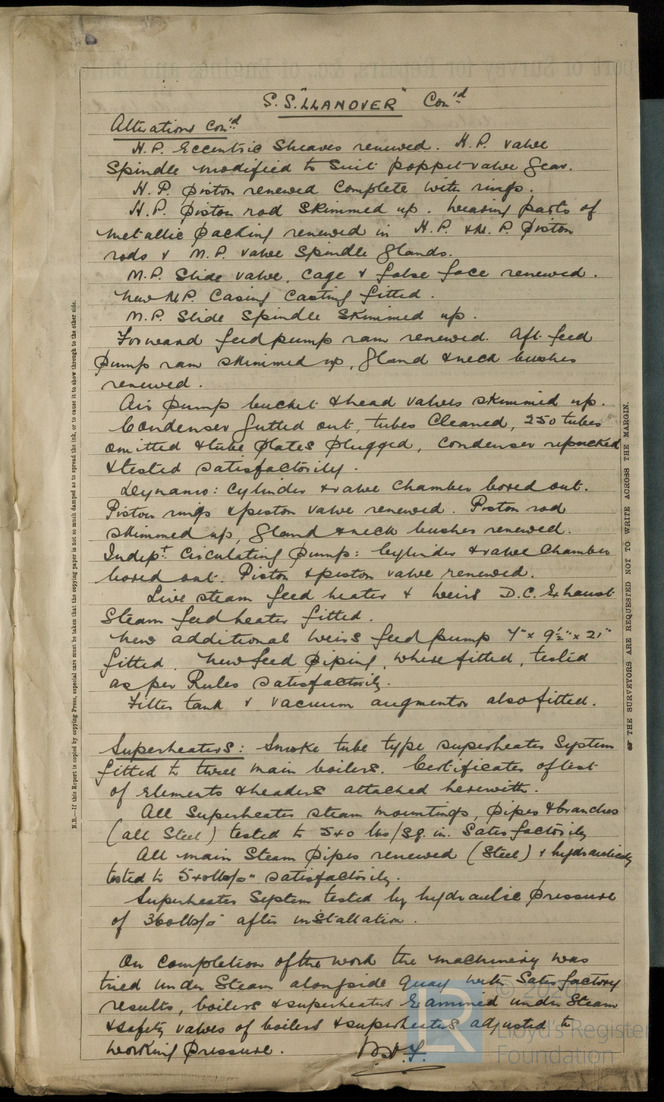 S.S. "LLANOVER" Con'd
Alterations Con'd
H.P. Eccentric Sheaves renewed. H.P. valve
Spindle modified to suit poppet valve gear.
H.P. piston renewed complete with rings.
H.P. piston rod skimmed up. Wearing parts of
metallic packing renewed in H.P. & M.P. piston
rods & M.P. valve spindle glands.
M.P. Slide valve, cage & false face renewed.
New M.P. casing casting fitted.
M.P. Slide Spindle skimmed up.
Forward feed pump ram renewed. Aft feed
pump ram skimmed up, gland & neck bushes
renewed.
Air pump bucket & head valves skimmed up.
Condenser gutted out, tubes cleaned, 250 tubes
omitted & tube plates plugged, condenser repacked
& tested satisfactorily.
Dynamo: cylinder & valve chamber bored out.
Piston rings & piston valve renewed. Piston rod
skimmed up, gland & neck bushes renewed.
Indept. Circulating pump: cylinder & valve chamber
bored out. Piston & piston valve renewed.
Live steam feed heater & Weirs D.C. Exhaust
Steam feed heater fitted.
New additional Weirs feed pump 7" x 9½" x 21"
fitted. New feed piping, where fitted, tested
as per Rules satisfactorily.
Filter tank & vacuum augmentor also fitted.
Superheaters: Smoke tube type superheater system
fitted to three main boilers. Certificates of test
of elements & headers attached herewith.
All Superheater steam mountings, pipes & branches
(all Steel) tested to 540 lbs/sq. in. Satisfactorily
All main Steam pipes renewed (Steel) & hydraulically
tested to 540 lbs/□" satisfactorily.
Superheater System tested by hydraulic pressure
of 360 lbs/□" after installation.
On completion of the work the machinery was
tried under Steam alongside quay with Satisfactory
results, boilers & superheaters Examined under Steam
& safety valves of boilers & superheaters adjusted to
working pressure.
N.B.—If this Report is copied by copying Press, especial care must be taken that the copying paper is not so much damped as to spread the ink, or to cause it to show through to the other side.
THE SURVEYORS ARE REQUESTED NOT TO WRITE ACROSS THE MARGIN.
Lloyd's Register
Foundation